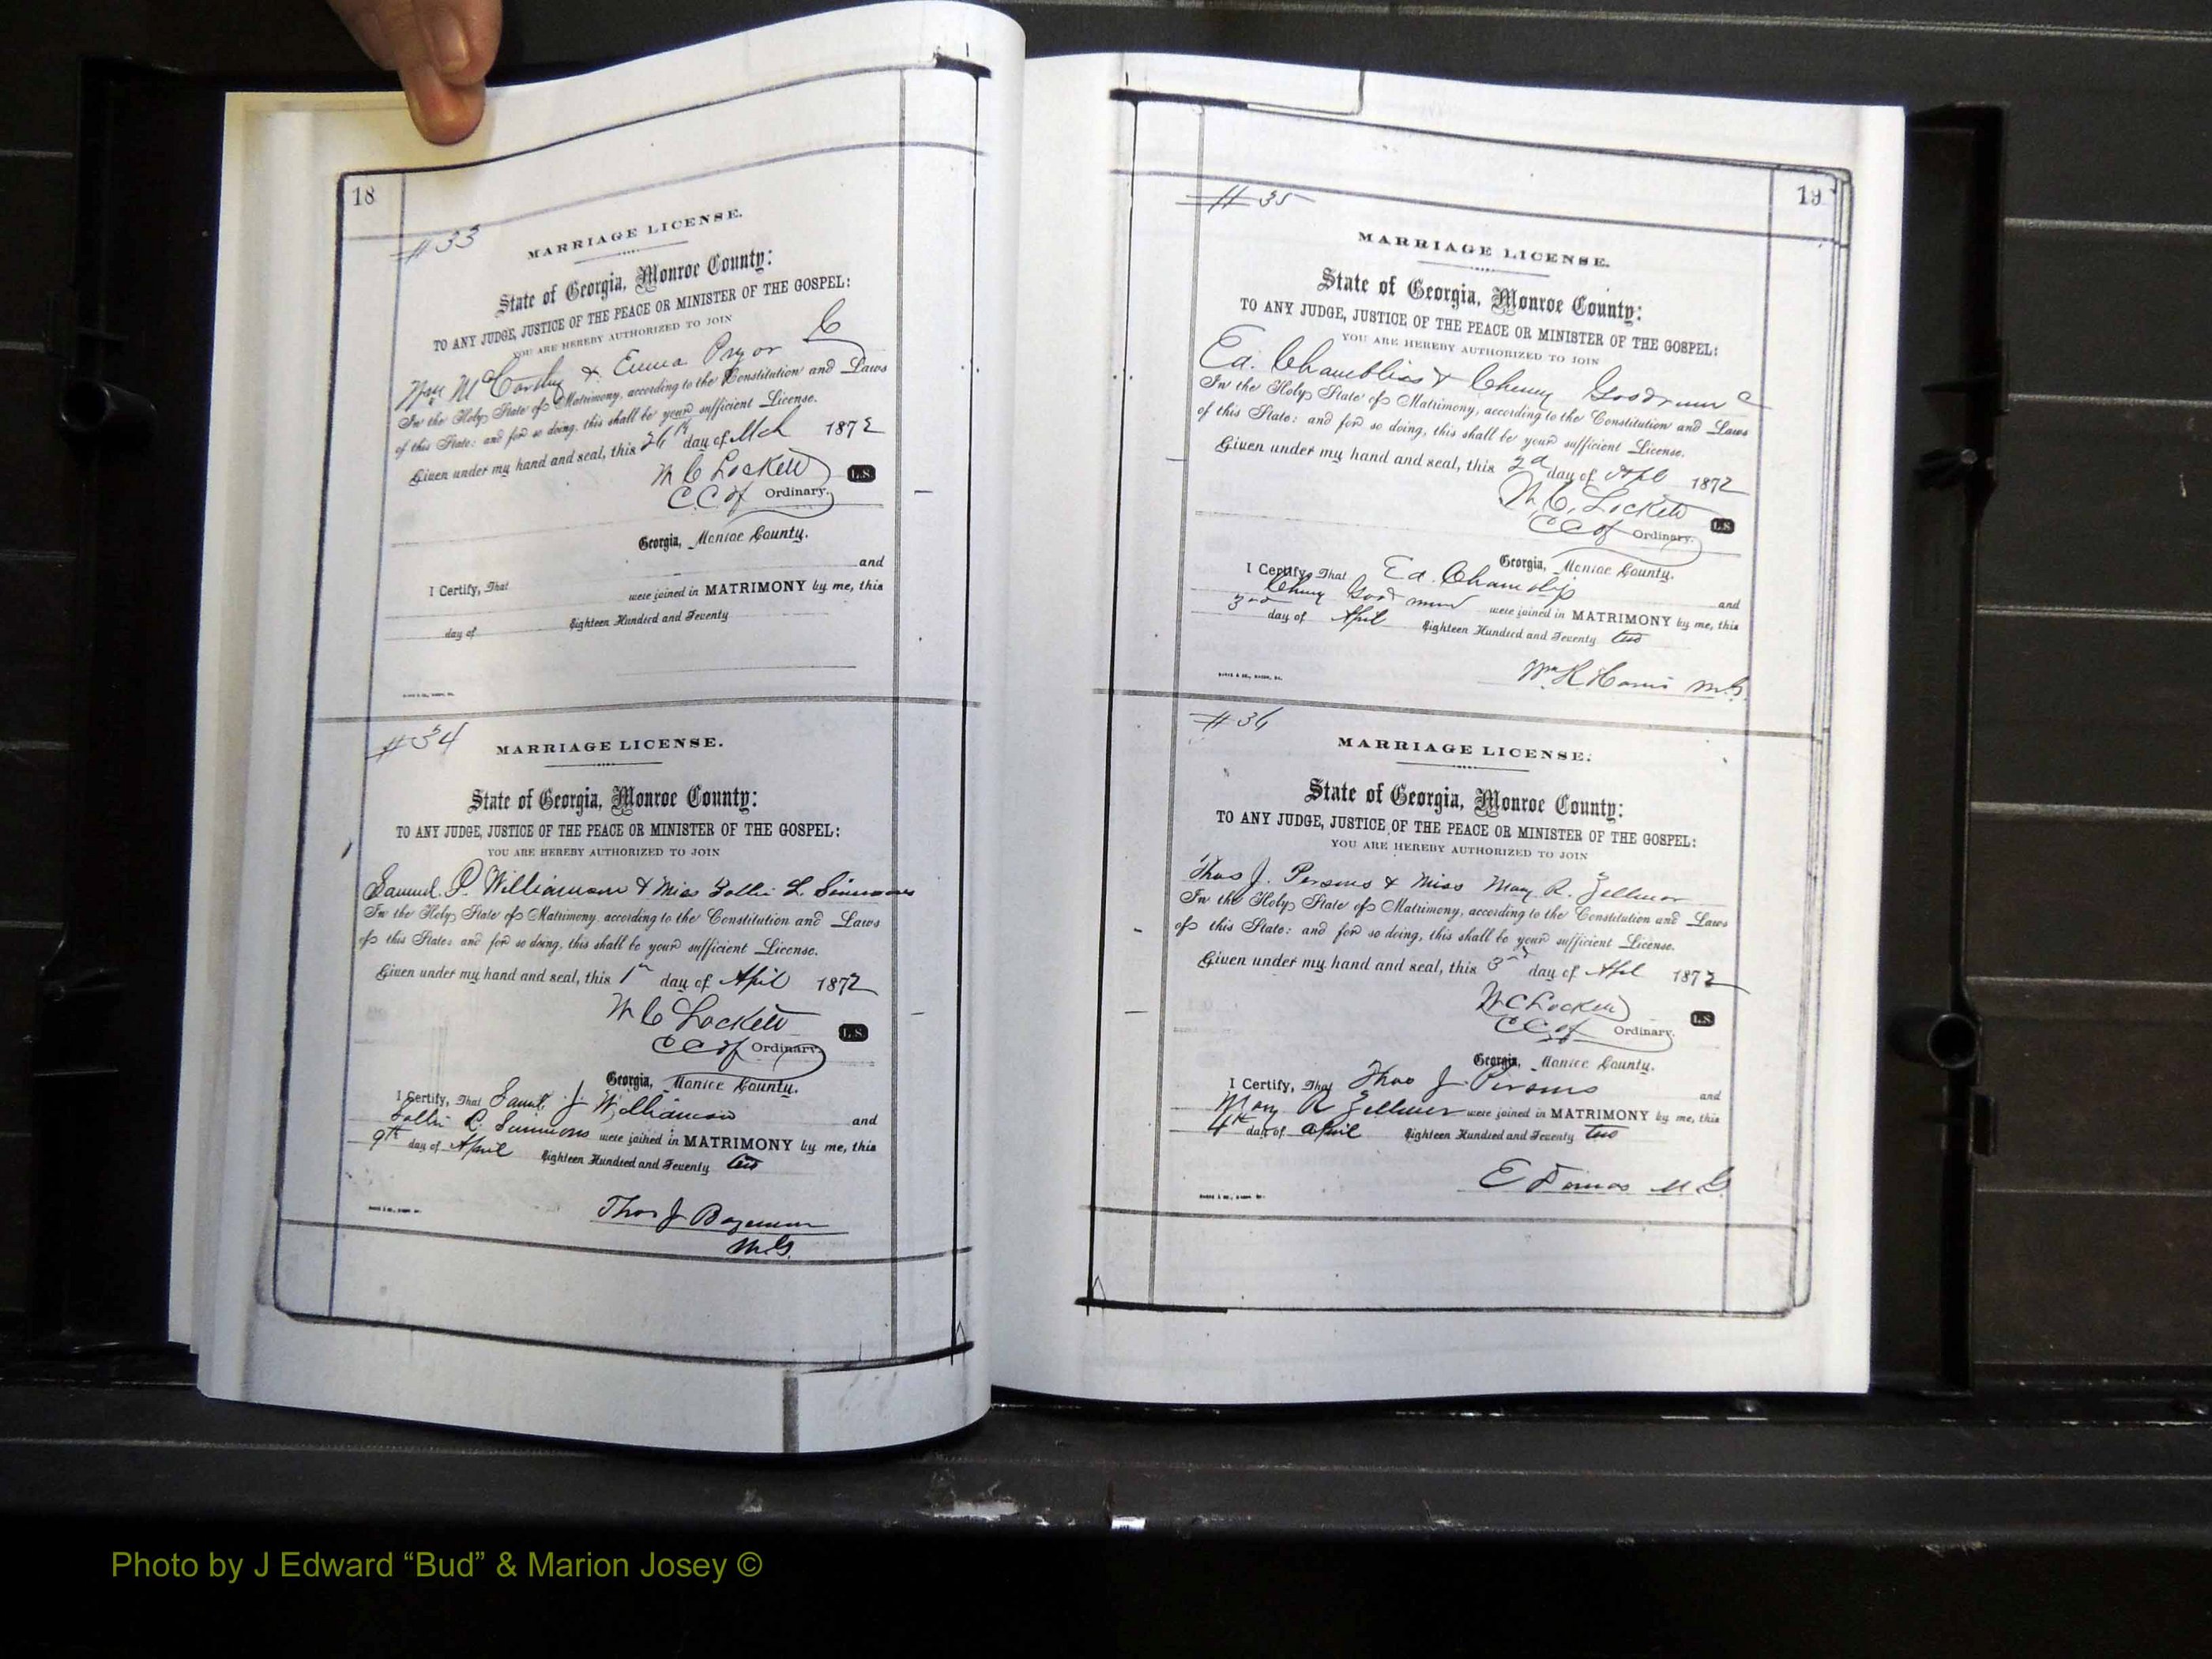 18
#33
MARRIAGE LICENSE.
State of Georgia, Monroe County:
TO ANY JUDGE, JUSTICE OF THE PEACE OR MINISTER OF THE GOSPEL:
YOU ARE HEREBY AUTHORIZED TO JOIN
Wm McCarthy & Emma Pryor C
In the Holy State of Matrimony, according to the Constitution and Laws
of this State: and for so doing, this shall be your sufficient License.
Given under my hand and seal, this 26th day of Mch 1872
W C Lockett L.S.
C.C of Ordinary.
Georgia, Monroe County.
I Certify, That and
were joined in MATRIMONY by me, this
day of Eighteen Hundred and Seventy
#34
MARRIAGE LICENSE.
State of Georgia, Monroe County:
TO ANY JUDGE, JUSTICE OF THE PEACE OR MINISTER OF THE GOSPEL:
YOU ARE HEREBY AUTHORIZED TO JOIN
Samuel P. Williamson & Miss L. Simmons
In the Holy State of Matrimony, according to the Constitution and Laws
of this State: and for so doing, this shall be your sufficient License.
Given under my hand and seal, this 1st day of April 1872
W C Lockett L.S.
C C of Ordinary.
Georgia, Monroe County.
I Certify, That Saml. J Williamson and
Simmons were joined in MATRIMONY by me, this
9th day of April Eighteen Hundred and Seventy two
Thos J
M.G.
19
#35
MARRIAGE LICENSE.
State of Georgia, Monroe County:
TO ANY JUDGE, JUSTICE OF THE PEACE OR MINISTER OF THE GOSPEL:
YOU ARE HEREBY AUTHORIZED TO JOIN
Ed. Chambliss & Goodrum C
In the Holy State of Matrimony, according to the Constitution and Laws
of this State: and for so doing, this shall be your sufficient License.
Given under my hand and seal, this 2d day of Apl 1872
W. C. Lockett L.S.
C C of Ordinary.
Georgia, Monroe County.
I Certify, That Ed. and
were joined in MATRIMONY by me, this
3rd day of April Eighteen Hundred and Seventy two
Wm R Harris M.G.
#36
MARRIAGE LICENSE.
State of Georgia, Monroe County:
TO ANY JUDGE, JUSTICE OF THE PEACE OR MINISTER OF THE GOSPEL:
YOU ARE HEREBY AUTHORIZED TO JOIN
Thos J. Persons & Miss Mary R. Zellner
In the Holy State of Matrimony, according to the Constitution and Laws
of this State: and for so doing, this shall be your sufficient License.
Given under my hand and seal, this 3rd day of Apl 1872
W C Lockett L.S.
C C of Ordinary.
Georgia, Monroe County.
I Certify, That Thos J Persons and
Mary R Zellner were joined in MATRIMONY by me, this
4th day of april Eighteen Hundred and Seventy two
E M G
Photo by J Edward “Bud” & Marion Josey ©